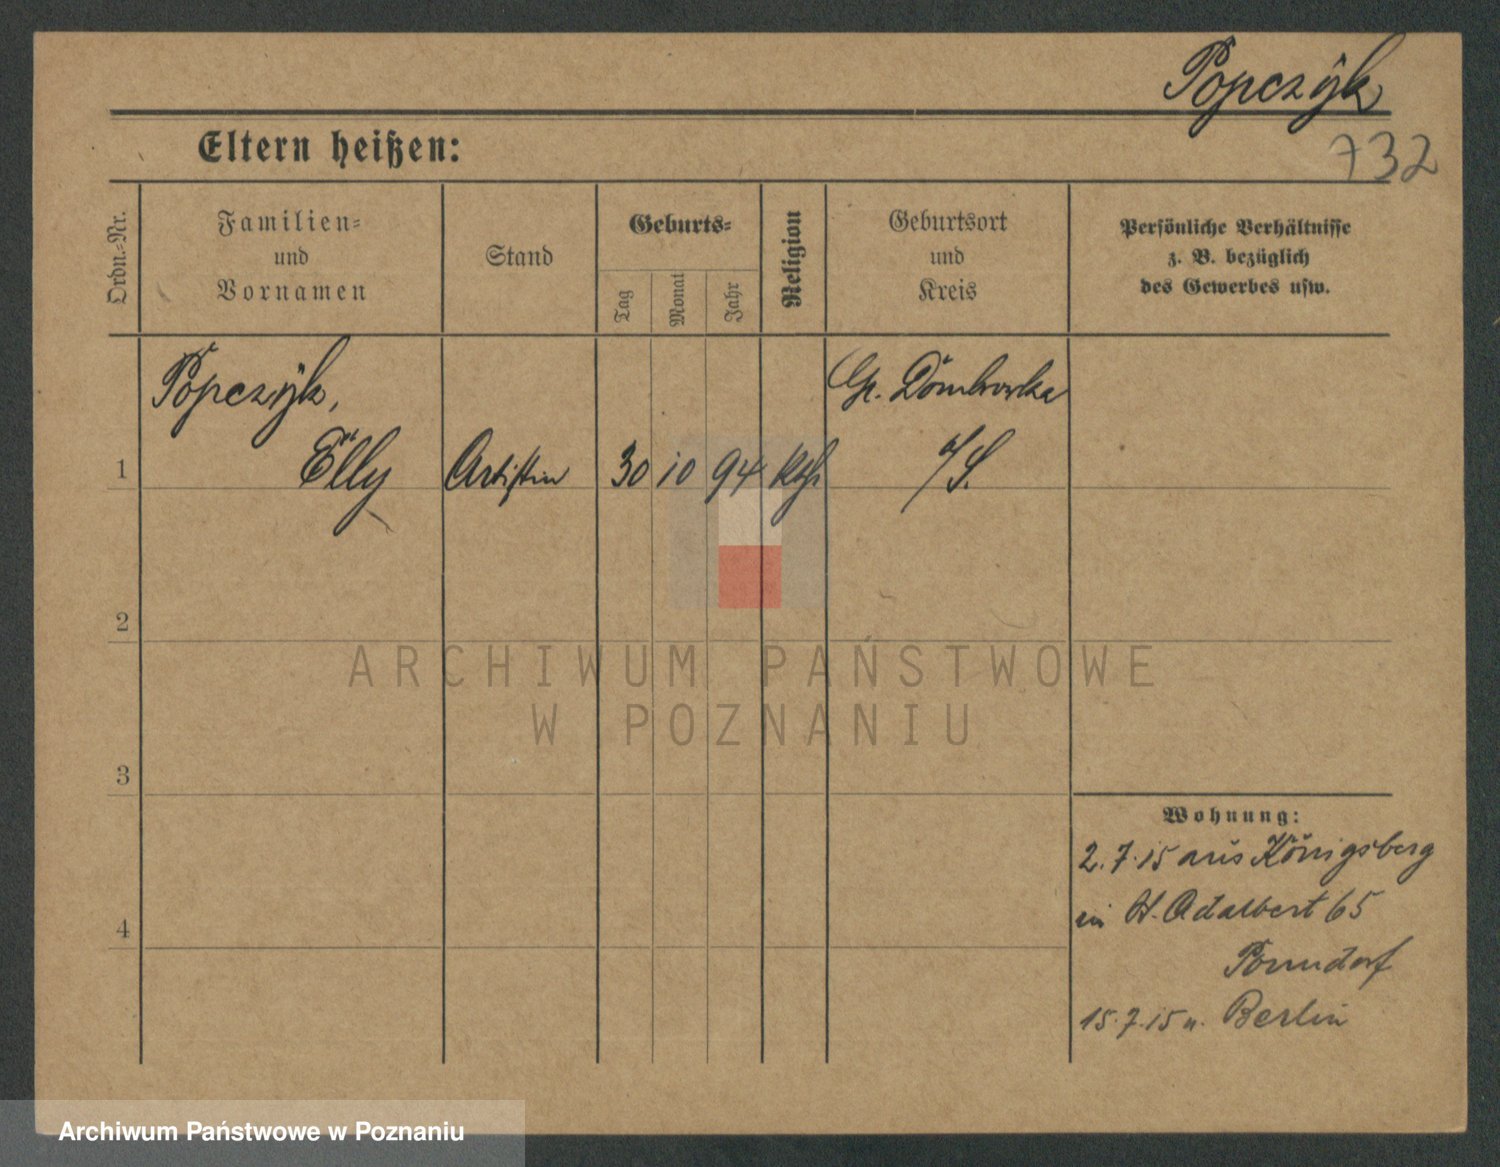 Popczÿk
732
Eltern heißen:
Ordn.-Nr.
Familien-
und
Vornamen
Stand
Geburts-
Tag
Monat
Jahr
Religion
Geburtsort
und
Kreis
Persönliche Verhältnisse
z. B. bezüglich
des Gewerbes usw.
Popczÿk,
Gr. Dombrowka
1 Elly Artistin 30 10 94 Kth. /S.
2
3
4
Wohnung:
2.7.15 aus Königsberg
in St. Adalbert 65
15.7.15 n. Berlin
ARCHIWUM PAŃSTWOWE
W POZNANIU
Archiwum Państwowe w Poznaniu